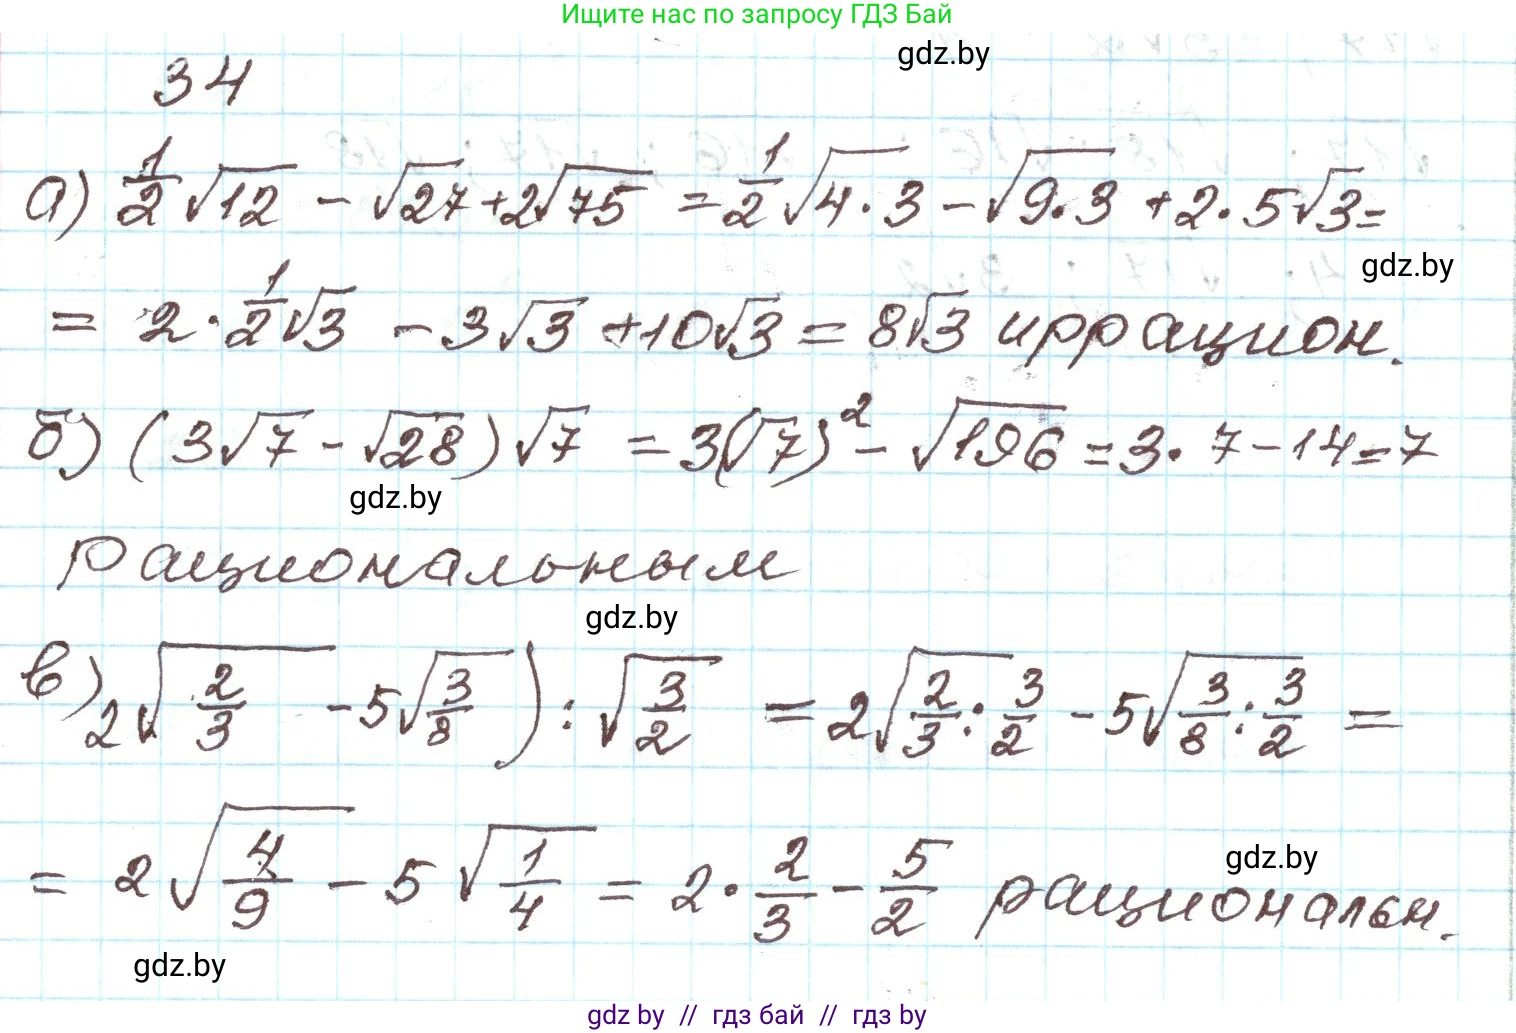 Ищите нас по запросу ГДЗ Бай
gdz.by
34
а) 1/2 √12 - √27 + 2√75 = 1/2 √4·3 - √9·3 + 2·5√3 =
gdz.by
= 2·1/2 √3 - 3√3 + 10√3 = 8√3 иррацион.
б) (3√7 - √28)√7 = 3(√7)² - √196 = 3·7 - 14 = 7
gdz.by
рациональным
gdz.by
в) 2√2/3 - 5√3/8) : √3/2 = 2√2/3 : 3/2 - 5√3/8 : 3/2 =
= 2√4/9 - 5√1/4 = 2·2/3 - 5/2 рациональн.
gdz.by
gdz.by
gdz by // гдз бай // гдз by